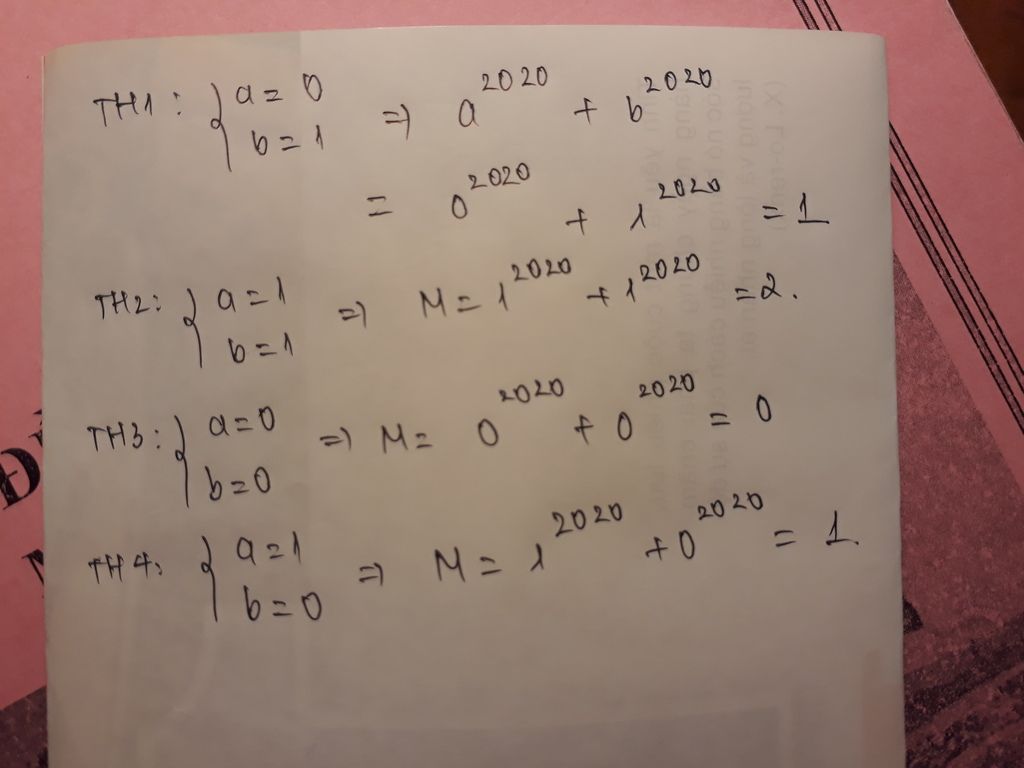 TH1: { a = 0 b = 1 => a^2020 + b^2020
= 0^2020 + 1^2020 = 1
TH2: { a = 1 b = 1 => M = 1^2020 + 1^2020 = 2.
TH3: { a = 0 b = 0 => M = 0^2020 + 0^2020 = 0
TH4: { a = 1 b = 0 => M = 1^2020 + 0^2020 = 1.